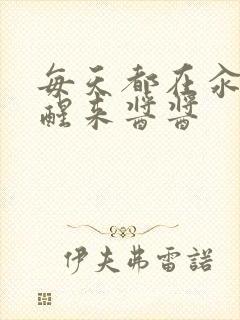 每天都在汆
醒来酱酱
伊夫弗雷諾